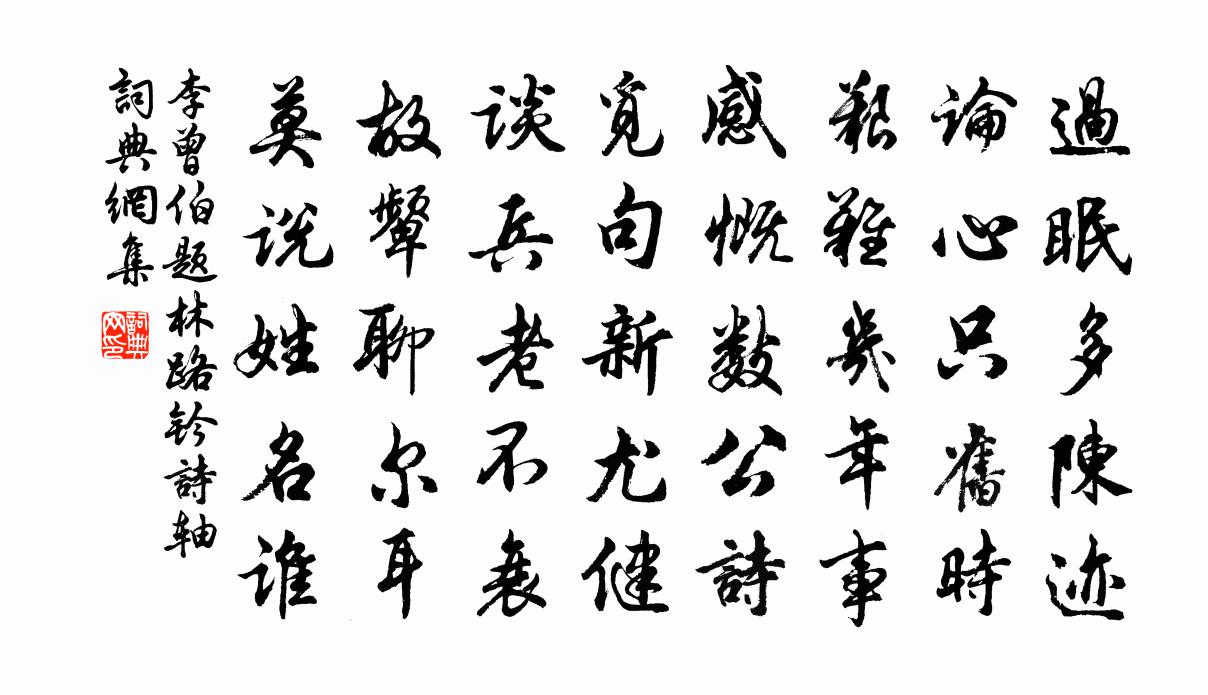 過眠多陳迹
論心只舊時
艱難幾年事
感慨數公詩
覓句新尤健
談兵老不衰
故顰聊尔耳
莫説姓名誰
李曾伯題林路鈐詩軸
詞典網集
詞典网印